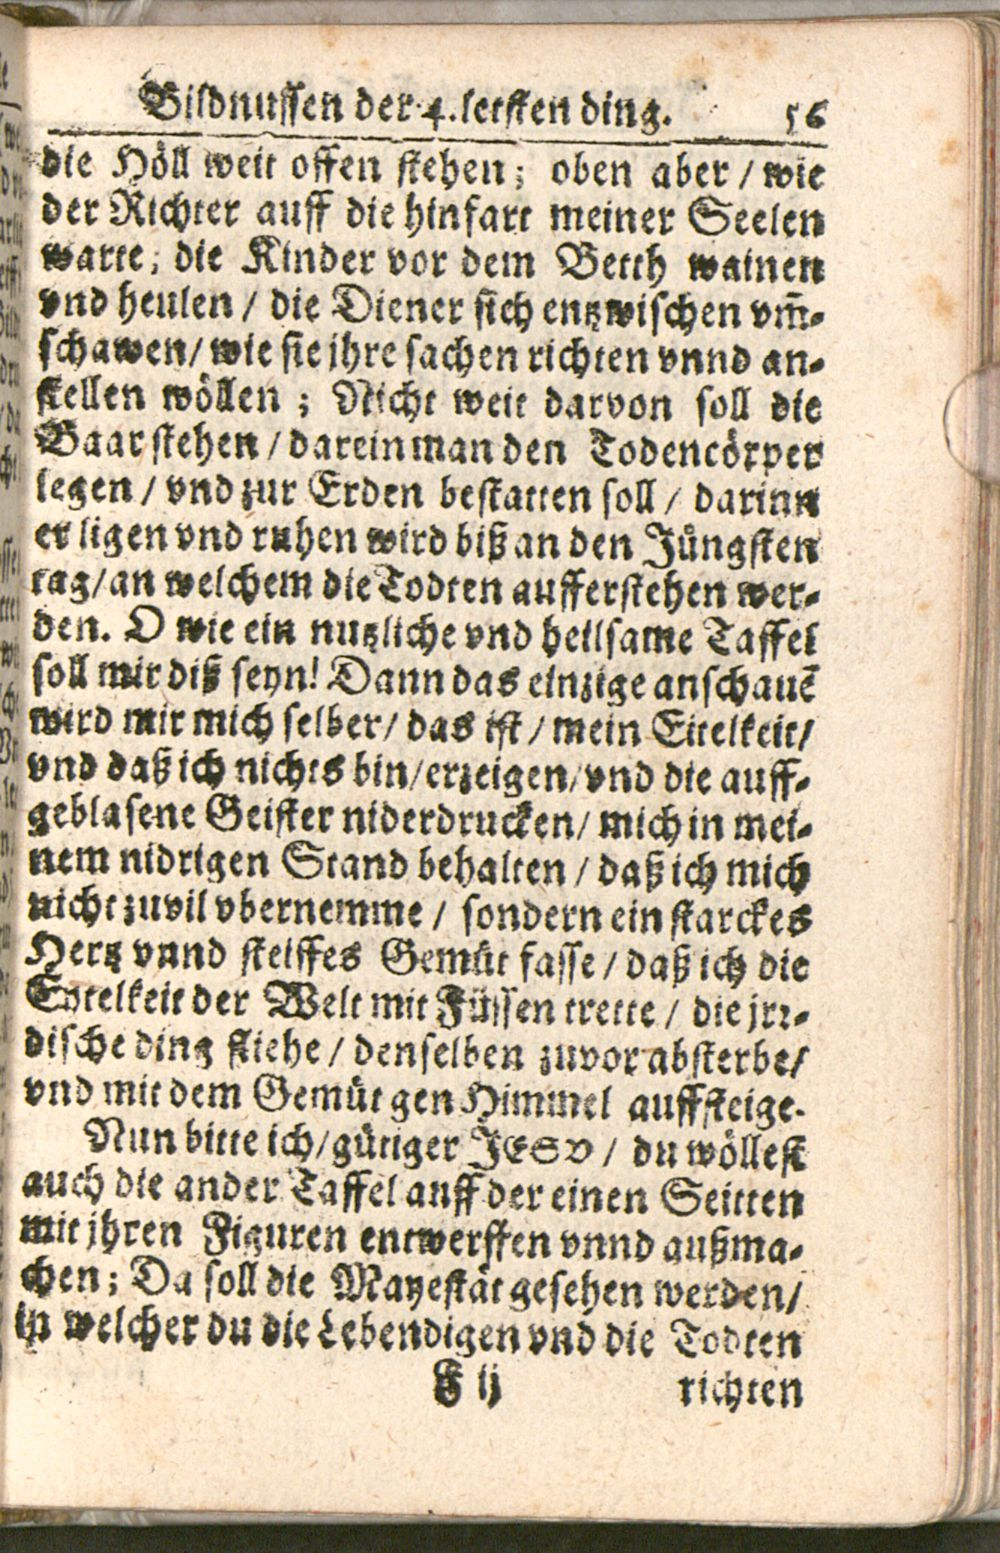 Bildnussen der 4. letsten ding. 56
die Höll weit offen stehen; oben aber / wie
der Richter auff die hinfart meiner Seelen
warte; die Kinder vor dem Betth wainen
vnd heulen / die Diener sich entzwischen vm̃-
schawen / wie sie jhre sachen richten vnnd an-
stellen wöllen ; Nicht weit darvon soll die
Baar stehen / darein man den Todencörper
legen / vnd zur Erden bestatten soll / darinn
er ligen vnd ruhen wird biß an den Jüngsten
tag / an welchem die Todten aufferstehen wer-
den. O wie ein nutzliche vnd heilsame Taffel
soll mir diß seyn! Dann das einzige anschauẽ
wird mir mich selber / das ist / mein Eitelkeit /
vnd daß ich nichts bin / erzeigen / vnd die auff-
geblasene Geister niderdrucken / mich in mei-
nem nidrigen Stand behalten / daß ich mich
nicht zuvil vbernemme / sondern ein starckes
Hertz vnnd steiffes Gemüt fasse / daß ich die
Eytelkeit der Welt mit Füssen trette / die jrr-
dische ding fliehe / denselben zuvor absterbe /
vnd mit dem Gemüt gen Himmel auffsteige.
Nun bitte ich / gütiger JESV / du wöllest
auch die ander Taffel auff der einen Seitten
mit jhren Figuren entwerffen vnnd außma-
chen; Da soll die Mayestät gesehen werden /
in welcher du die Lebendigen vnd die Todten
F ij richten